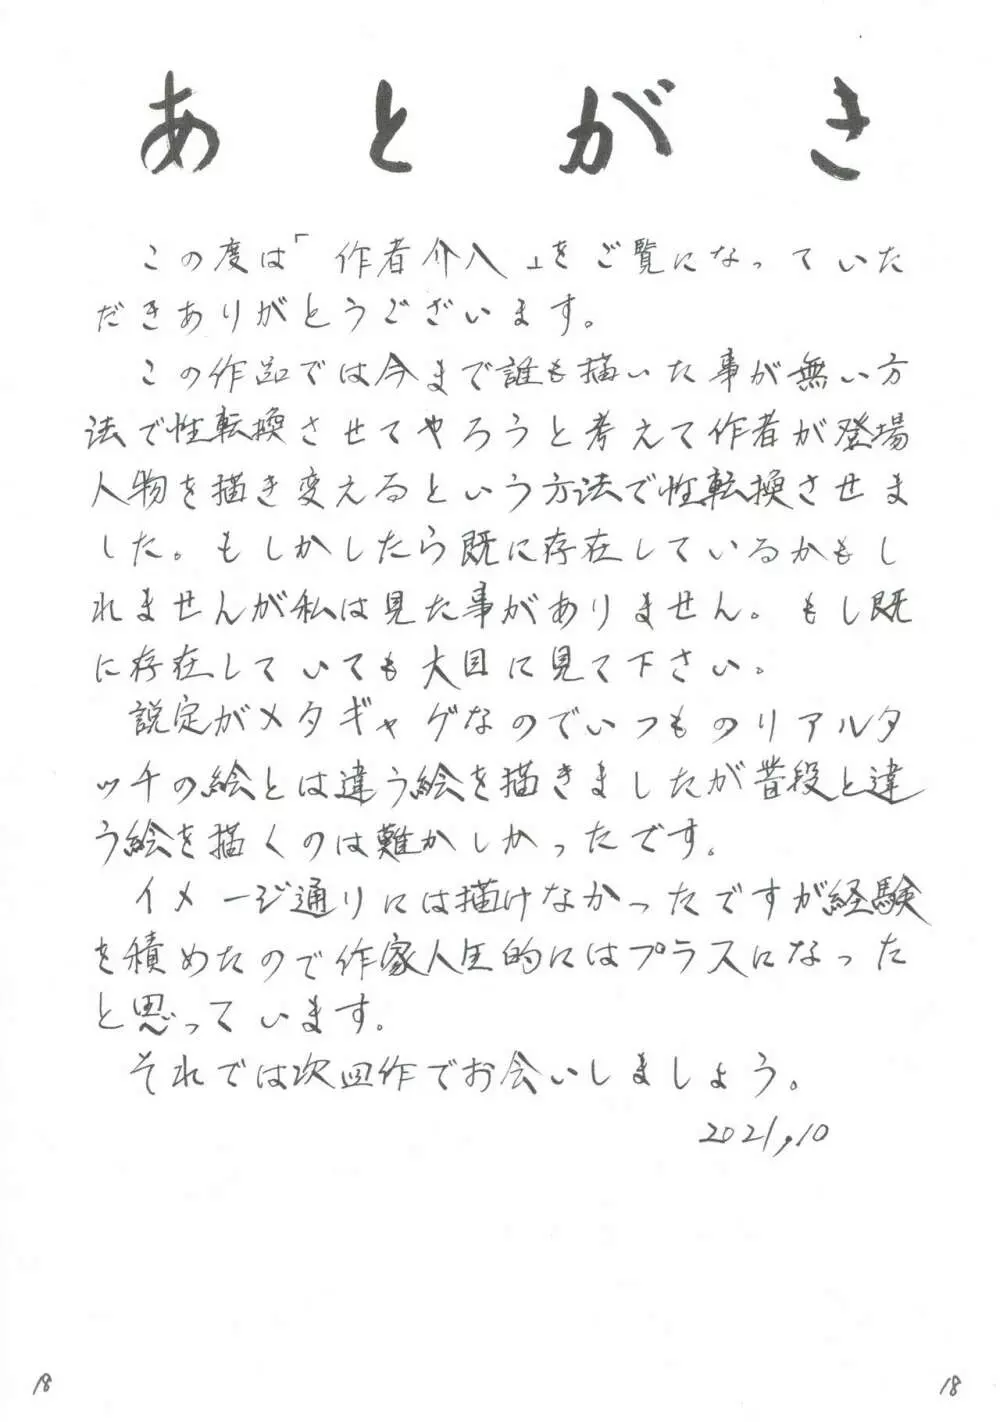 あとがき
この度は「作者介入」をご覧になっていた
だきありがとうございます。
この作品では今まで誰も描いた事が無い方
法で性転換させてやろうと考えて作者が登場
人物を描き変えるという方法で性転換させま
した。もしかしたら既に存在しているかもし
れませんが私は見た事がありません。もし既
に存在していても大目に見て下さい。
設定がメタギャグなのでいつものリアルタ
ッチの絵とは違う絵を描きましたが普段と違
う絵を描くのは難かしかったです。
イメージ通りには描けなかったですが経験
を積めたので作家人生的にはプラスになった
と思っています。
それでは次回作でお会いしましょう。
2021,10
18
18